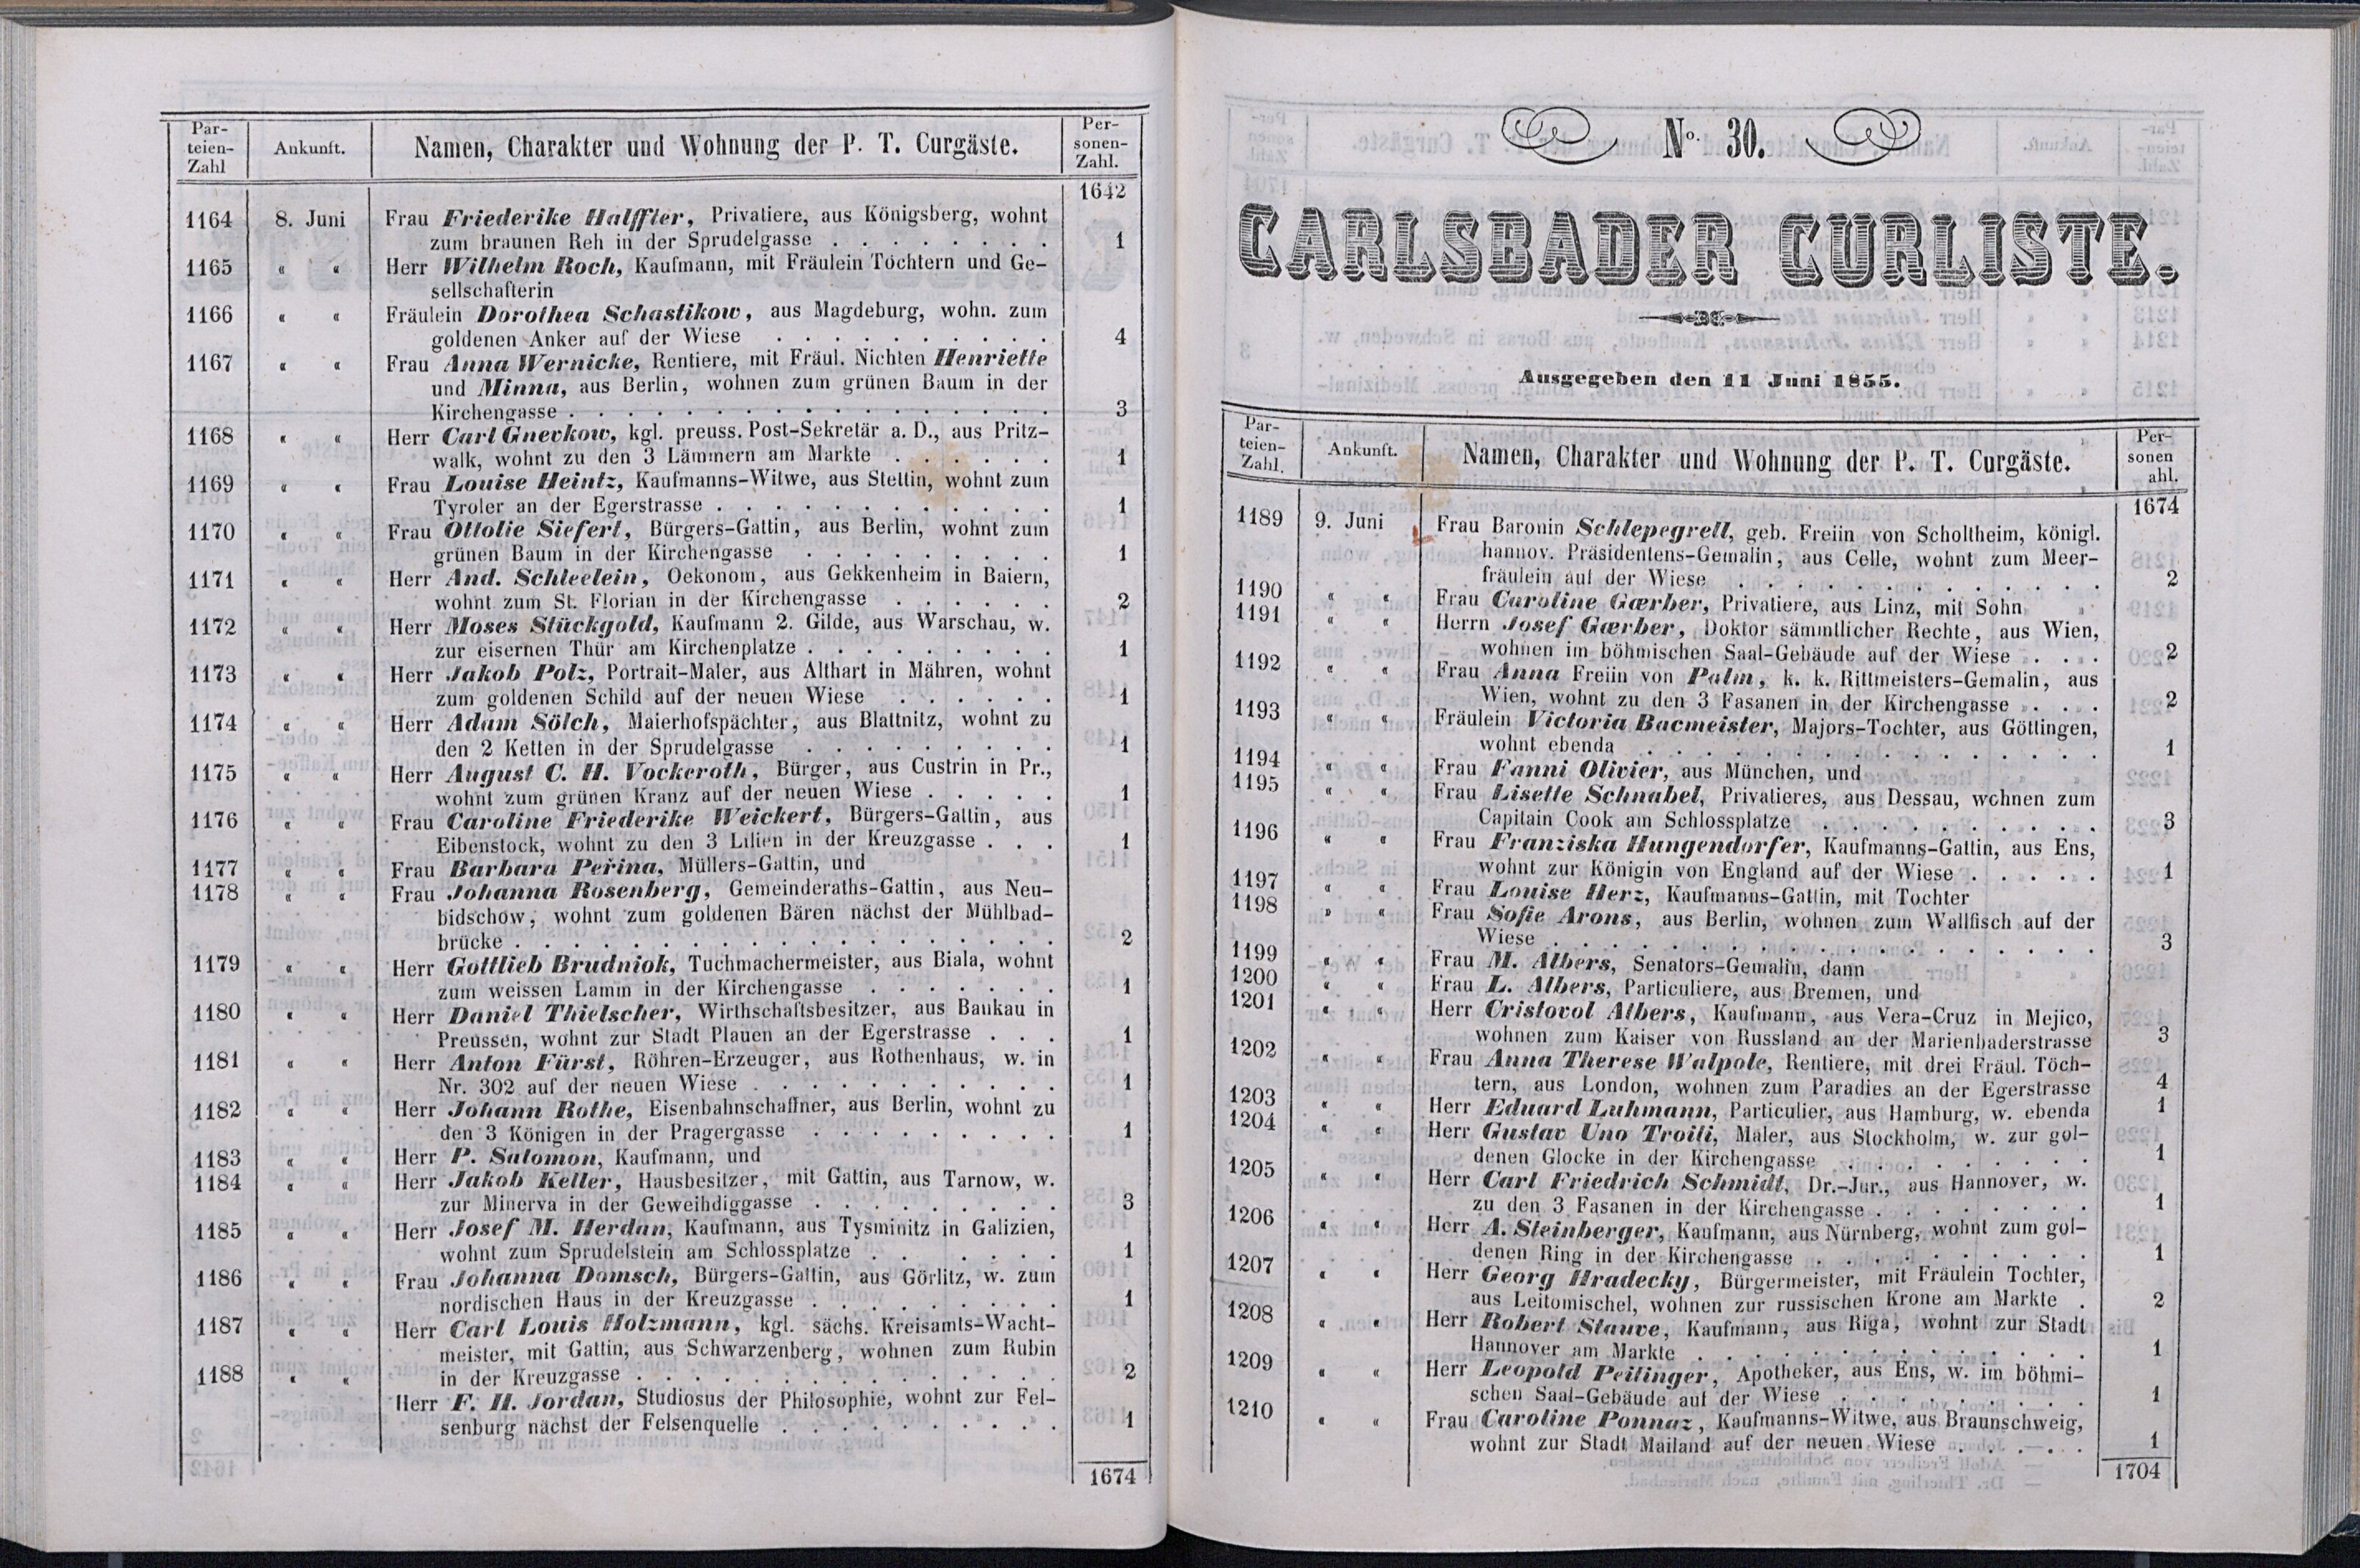 Par-
teien-
Zahl
Ankunft.
Namen, Charakter und Wohnung der P. T. Curgäste.
Per-
sonen-
Zahl.
1642
1164 8. Juni Frau Friederike Halffter, Privatiere, aus Königsberg, wohnt
zum braunen Reh in der Sprudelgasse . . . . . . . . 1
1165 « « Herr Wilhelm Roch, Kaufmann, mit Fräulein Töchtern und Ge-
sellschafterin
1166 « « Fräulein Dorothea Schastikow, aus Magdeburg, wohn. zum
goldenen Anker auf der Wiese . . . . . . . . . . 4
1167 « « Frau Anna Wernicke, Rentiere, mit Fräul. Nichten Henriette
und Minna, aus Berlin, wohnen zum grünen Baum in der
Kirchengasse . . . . . . . . . . . . . . . . . 3
1168 « « Herr Carl Gnevkow, kgl. preuss. Post-Sekretär a. D., aus Pritz-
walk, wohnt zu den 3 Lämmern am Markte . . . . . . 1
1169 « « Frau Louise Heintz, Kaufmanns-Witwe, aus Stettin, wohnt zum
Tyroler an der Egerstrasse . . . . . . . . . . . . 1
1170 « « Frau Ottolie Siefert, Bürgers-Gattin, aus Berlin, wohnt zum
grünen Baum in der Kirchengasse . . . . . . . . . 1
1171 « « Herr And. Schleelein, Oekonom, aus Gekkenheim in Baiern,
wohnt zum St. Florian in der Kirchengasse . . . . . . 2
1172 « « Herr Moses Stückgold, Kaufmann 2. Gilde, aus Warschau, w.
zur eisernen Thür am Kirchenplatze . . . . . . . . . 1
1173 « « Herr Jakob Polz, Portrait-Maler, aus Althart in Mähren, wohnt
zum goldenen Schild auf der neuen Wiese . . . . . . 1
1174 « « Herr Adam Sölch, Maierhofspächter, aus Blattnitz, wohnt zu
den 2 Ketten in der Sprudelgasse . . . . . . . . . 1
1175 « « Herr August C. H. Vockeroth, Bürger, aus Custrin in Pr.,
wohnt zum grünen Kranz auf der neuen Wiese . . . . . 1
1176 « « Frau Caroline Friederike Weickert, Bürgers-Gattin, aus
Eibenstock, wohnt zu den 3 Lilien in der Kreuzgasse . . . 1
1177 « « Frau Barbara Peřina, Müllers-Gattin, und
1178 « « Frau Johanna Rosenberg, Gemeinderaths-Gattin, aus Neu-
bidschow, wohnt zum goldenen Bären nächst der Mühlbad-
brücke . . . . . . . . . . . . . . . . . . . 2
1179 « « Herr Gottlieb Brudniok, Tuchmachermeister, aus Biala, wohnt
zum weissen Lamm in der Kirchengasse . . . . . . . 1
1180 « « Herr Daniel Thielscher, Wirthschaftsbesitzer, aus Baukau in
Preussen, wohnt zur Stadt Plauen an der Egerstrasse . . . 1
1181 « « Herr Anton Fürst, Röhren-Erzeuger, aus Rothenhaus, w. in
Nr. 302 auf der neuen Wiese . . . . . . . . . . . 1
1182 « « Herr Johann Rothe, Eisenbahnschaffner, aus Berlin, wohnt zu
den 3 Königen in der Pragergasse . . . . . . . . . 1
1183 « « Herr P. Salomon, Kaufmann, und
1184 « « Herr Jakob Keller, Hausbesitzer, mit Gattin, aus Tarnow, w.
zur Minerva in der Geweihdiggasse . . . . . . . . . 3
1185 « « Herr Josef M. Herdan, Kaufmann, aus Tysminitz in Galizien,
wohnt zum Sprudelstein am Schlossplatze . . . . . . . 1
1186 « « Frau Johanna Domsch, Bürgers-Gattin, aus Görlitz, w. zum
nordischen Haus in der Kreuzgasse . . . . . . . . . 1
1187 « « Herr Carl Louis Holzmann, kgl. sächs. Kreisamts-Wacht-
meister, mit Gattin, aus Schwarzenberg, wohnen zum Rubin
1188 « « in der Kreuzgasse . . . . . . . . . . . . . . . 2
Herr F. H. Jordan, Studiosus der Philosophie, wohnt zur Fel-
senburg nächst der Felsenquelle . . . . . . . . . . 1
1674
No. 30.
CARLSBADER CURLISTE.
Ausgegeben den 11 Juni 1855.
Par-
teien-
Zahl.
Ankunft.
Namen, Charakter und Wohnung der P. T. Curgäste.
Per-
sonen
ahl.
1674
1189 9. Juni Frau Baronin Schlepegrell, geb. Freiin von Scholtheim, königl.
hannov. Präsidentens-Gemalin, aus Celle, wohnt zum Meer-
fräulein auf der Wiese . . . . . . . . . . . . . 2
1190 « « Frau Caroline Gærber, Privatiere, aus Linz, mit Sohn
1191 « « Herrn Josef Gærber, Doktor sämmtlicher Rechte, aus Wien,
wohnen im böhmischen Saal-Gebäude auf der Wiese . . . 2
1192 « « Frau Anna Freiin von Palm, k. k. Rittmeisters-Gemalin, aus
Wien, wohnt zu den 3 Fasanen in der Kirchengasse . . . 2
1193 « « Fräulein Victoria Bacmeister, Majors-Tochter, aus Göttingen,
wohnt ebenda . . . . . . . . . . . . . . . . 1
1194 « « Frau Fanni Olivier, aus München, und
1195 « « Frau Lisette Schnabel, Privatieres, aus Dessau, wohnen zum
Capitain Cook am Schlossplatze . . . . . . . . . . 3
1196 « « Frau Franziska Hungendorfer, Kaufmanns-Gattin, aus Ens,
wohnt zur Königin von England auf der Wiese . . . . . 1
1197 « « Frau Louise Herz, Kaufmanns-Gattin, mit Tochter
1198 » « Frau Sofie Arons, aus Berlin, wohnen zum Wallfisch auf der
Wiese . . . . . . . . . . . . . . . . . . . 3
1199 « « Frau M. Albers, Senators-Gemalin, dann
1200 « « Frau L. Albers, Particuliere, aus Bremen, und
1201 « « Herr Cristovol Albers, Kaufmann, aus Vera-Cruz in Mejico,
wohnen zum Kaiser von Russland an der Marienbaderstrasse 3
1202 « « Frau Anna Therese Walpole, Rentiere, mit drei Fräul. Töch-
tern, aus London, wohnen zum Paradies an der Egerstrasse 4
1203 « « Herr Eduard Luhmann, Particulier, aus Hamburg, w. ebenda 1
1204 « « Herr Gustav Uno Troili, Maler, aus Stockholm, w. zur gol-
denen Glocke in der Kirchengasse . . . . . . . . . 1
1205 « « Herr Carl Friedrich Schmidt, Dr.-Jur., aus Hannover, w.
zu den 3 Fasanen in der Kirchengasse . . . . . . . . 1
1206 « « Herr A. Steinberger, Kaufmann, aus Nürnberg, wohnt zum gol-
denen Ring in der Kirchengasse . . . . . . . . . . 1
1207 « « Herr Georg Hradecky, Bürgermeister, mit Fräulein Tochter,
aus Leitomischel, wohnen zur russischen Krone am Markte . 2
1208 « « Herr Robert Stauve, Kaufmann, aus Riga, wohnt zur Stadt
Hannover am Markte . . . . . . . . . . . . . . 1
1209 « « Herr Leopold Peitinger, Apotheker, aus Ens, w. im böhmi-
schen Saal-Gebäude auf der Wiese . . . . . . . . . 1
1210 « « Frau Caroline Ponnaz, Kaufmanns-Witwe, aus Braunschweig,
wohnt zur Stadt Mailand auf der neuen Wiese . . . . . 1
1704